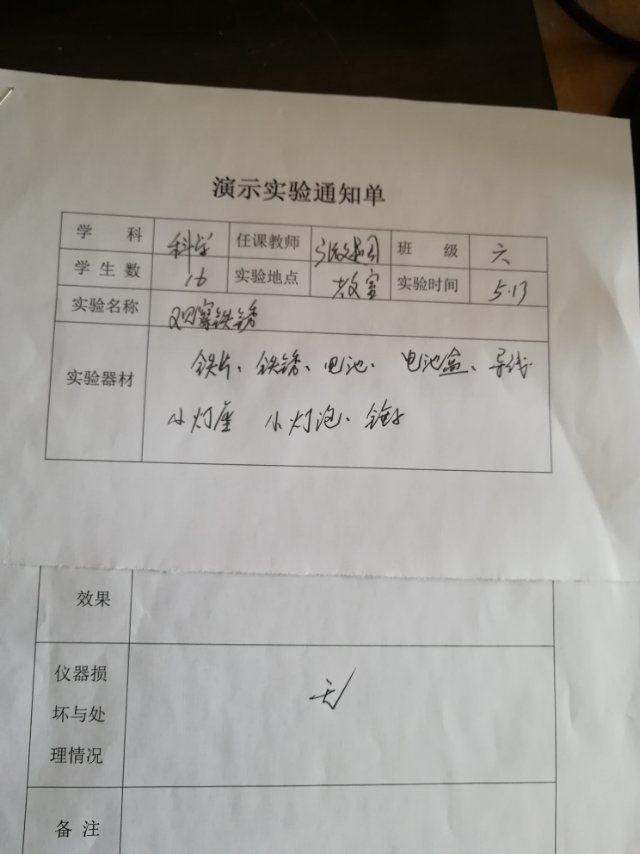 演示实验通知单
学 科 科学 任课教师 班 级 六
学生数 16 实验地点 教室 实验时间 5.13
实验名称 观察铁锈
实验器材 铁片、铁锈、电池、电池盒、导线
小灯座 小灯泡、锤子
效果
仪器损
坏与处
理情况
无
备 注